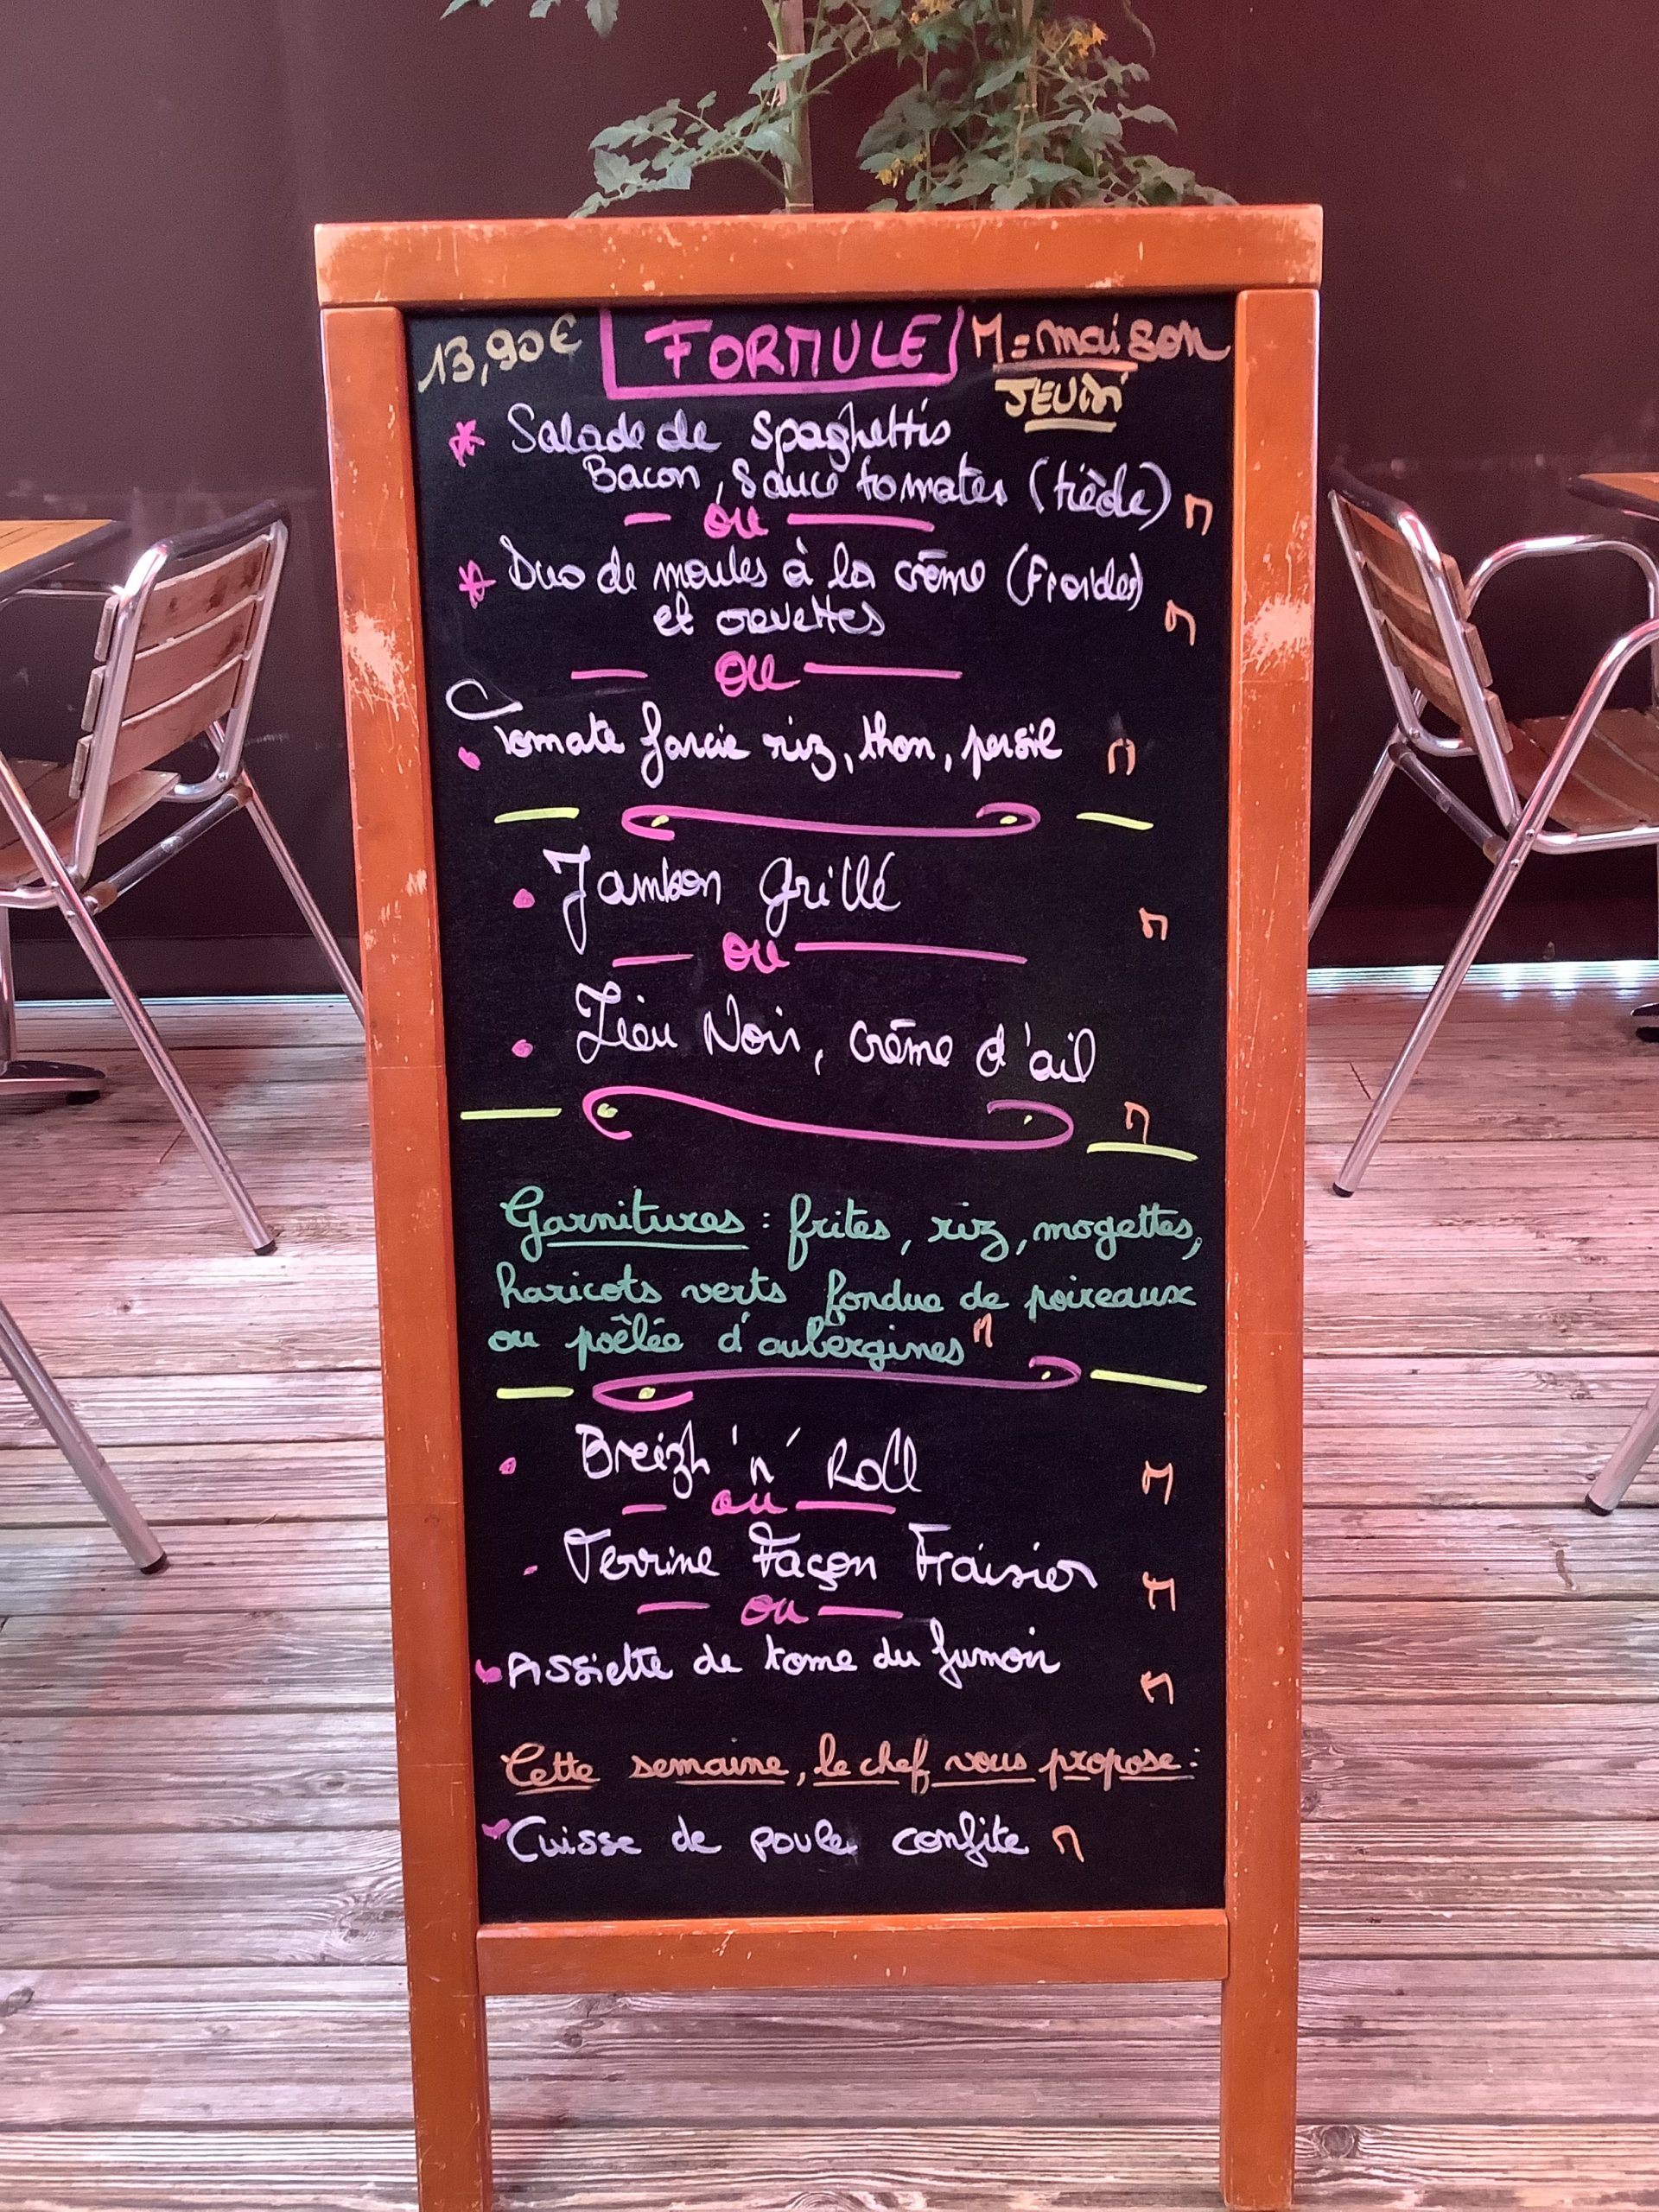 13,90€ FORMULE M = maison
JEUDI
* Salade de spaghettis
Bacon, sauce tomates (tiède) M
— ou —
* Duo de moules à la crème (Froides)
et crevettes M
— ou —
• Tomate farcie riz, thon, persil M
• Jambon Grillé M
— ou —
• Lieu Noir, crème d'ail
M
Garnitures : frites, riz, mogettes,
haricots verts fondue de poireaux
ou poêlée d'aubergines M
• Breizh 'n' Roll M
— ou —
• Terrine Façon Fraisier M
— ou —
• Assiette de tome du fumoir M
Cette semaine, le chef vous propose :
Cuisse de poule confite M